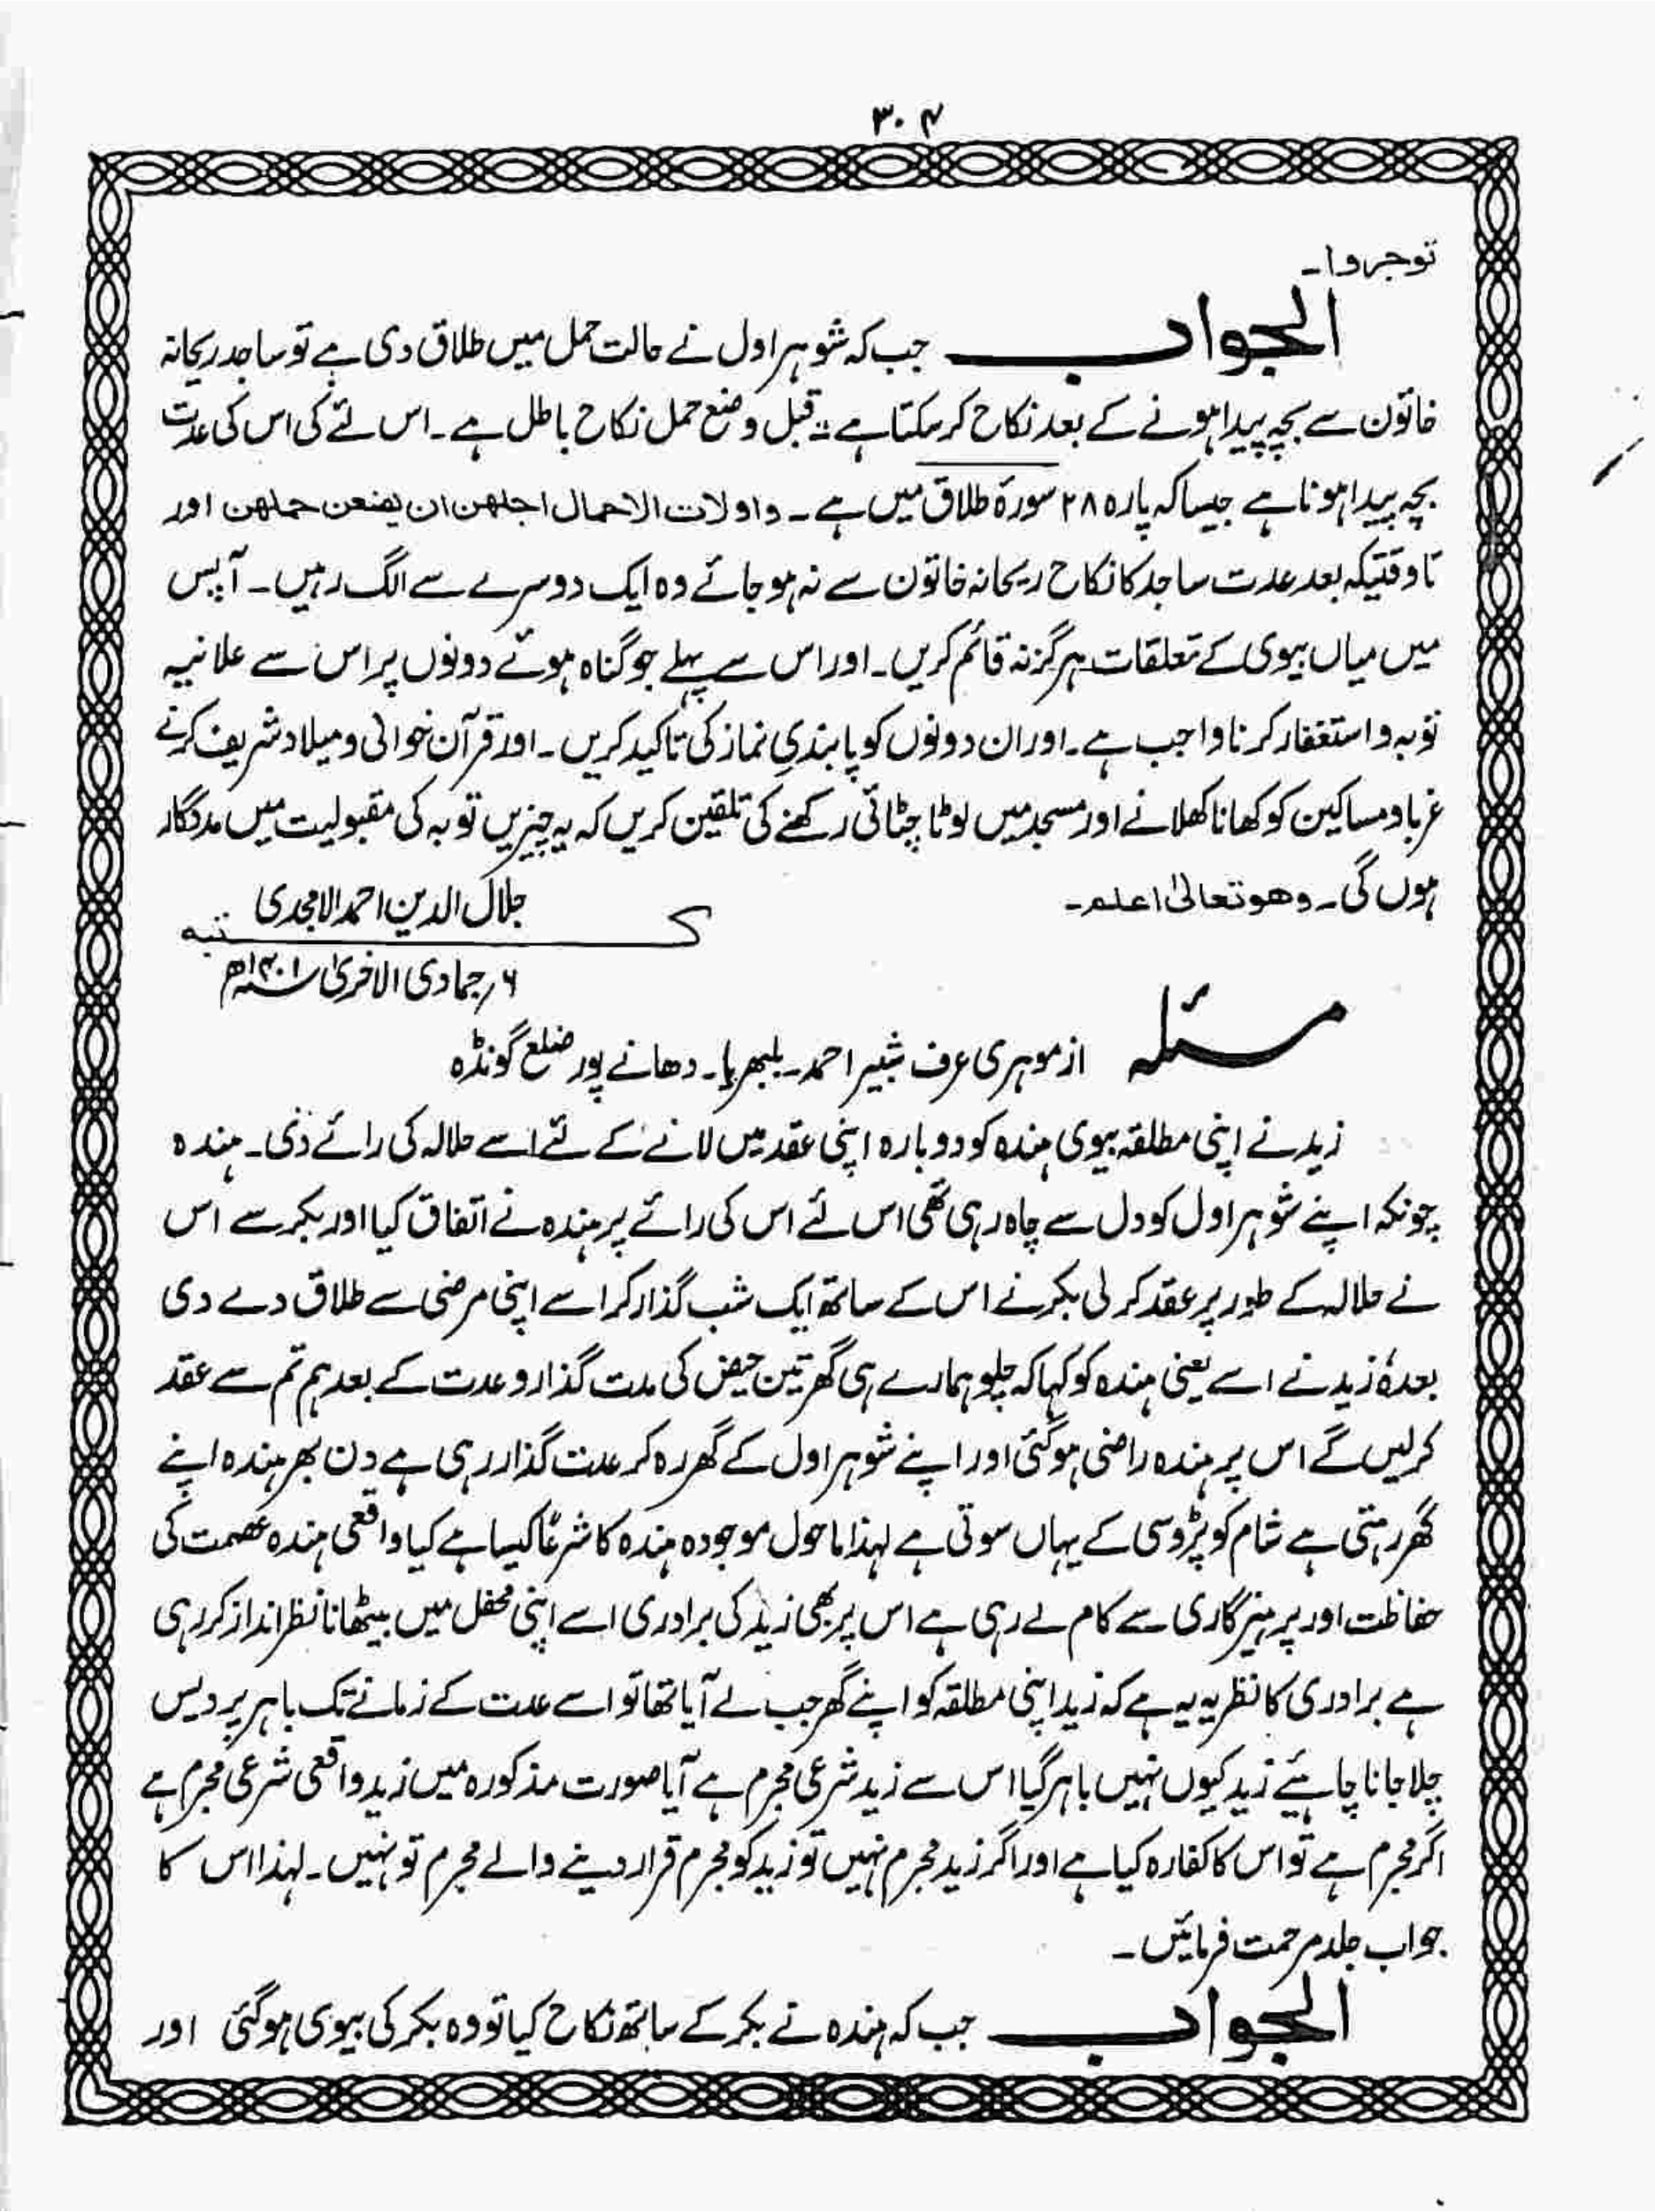 ۳۰۴
توجروا۔
الجواب جب کہ شوہر اول نے حالت حمل میں طلاق دی ہے تو ساجد ریحانہ
خاتون سے بچہ پیدا ہونے کے بعد نکاح کر سکتا ہے۔ قبل وضع حمل نکاح باطل ہے۔ اس لئے کی اس کی عدت
بچہ پیدا ہونا ہے جیسا کہ پارہ ۲۸ سورۂ طلاق میں ہے۔ واولات الاحمال اجلھن ان یضعن حملھن اور
تاوقتیکہ بعد عدت ساجد کا نکاح ریحانہ خاتون سے نہ ہو جائے وہ ایک دوسرے سے الگ رہیں۔ آپس
میں میاں بیوی کے تعلقات ہرگز نہ قائم کریں۔ اور اس سے پہلے جو گناہ ہوئے دونوں پر اس سے علانیہ
توبہ و استغفار کرنا واجب ہے۔ اور ان دونوں کو پابندیِ نماز کی تاکید کریں۔ اور قرآن خوانی و میلاد شریف کرنے
غربا و مساکین کو کھانا کھلانے اور مسجد میں لوٹا چٹائی رکھنے کی تلقین کریں کہ یہ چیزیں توبہ کی مقبولیت میں مددگار
ہوں گی۔ وھو تعالیٰ اعلم۔
جلال الدین احمد الامجدی
کتبہ
۶؍ جمادی الاخریٰ ۱۴۰۱ھ
مسئلہ از موہری عرف شبیر احمد۔ بلبھریا۔ دھانے پور ضلع گونڈہ
زید نے اپنی مطلقہ بیوی ہندہ کو دوبارہ اپنی عقد میں لانے کے لئے اسے حلالہ کی رائے دی۔ ہندہ
چونکہ اپنے شوہر اول کو دل سے چاہ رہی تھی اس لئے اس کی رائے پر ہندہ نے اتفاق کیا اور بکر سے اس
نے حلالہ کے طور پر عقد کر لی بکر نے اس کے ساتھ ایک شب گذار کر اسے اپنی مرضی سے طلاق دے دی
بعدہٗ زید نے اسے یعنی ہندہ کو کہا کہ چلو ہمارے ہی گھر تین حیض کی مدت گذارو عدت کے بعد ہم تم سے عقد
کرلیں گے اس پر ہندہ راضی ہوگئی اور اپنے شوہر اول کے گھر رہ کر عدت گذار رہی ہے دن بھر ہندہ اپنے
گھر رہتی ہے شام کو پڑوسی کے یہاں سوتی ہے لہذا ماحول موجودہ ہندہ کا شرعًا کیسا ہے کیا واقعی ہندہ عصمت کی
حفاظت اور پرہیزگاری سے کام لے رہی ہے اس پر بھی زید کی برادری اسے اپنی محفل میں بیٹھانا نظر انداز کر رہی
ہے برادری کا نظریہ یہ ہے کہ زید اپنی مطلقہ کو اپنے گھر جب لے آیا تھا تو اسے عدت کے زمانے تک باہر پردیس
چلا جانا چاہئیے زید کیوں نہیں باہر گیا اس سے زید شرعی مجرم ہے آیا صورت مذکورہ میں زید واقعی شرعی مجرم ہے
اگر مجرم ہے تو اس کا کفارہ کیا ہے اور اگر زید مجرم نہیں تو زید کو مجرم قرار دینے والے مجرم تو نہیں۔ لہذا اس کا
جواب جلد مرحمت فرمائیں۔
الجواب جب کہ ہندہ نے بکر کے ساتھ نکاح کیا تو وہ بکر کی بیوی ہوگئی اور